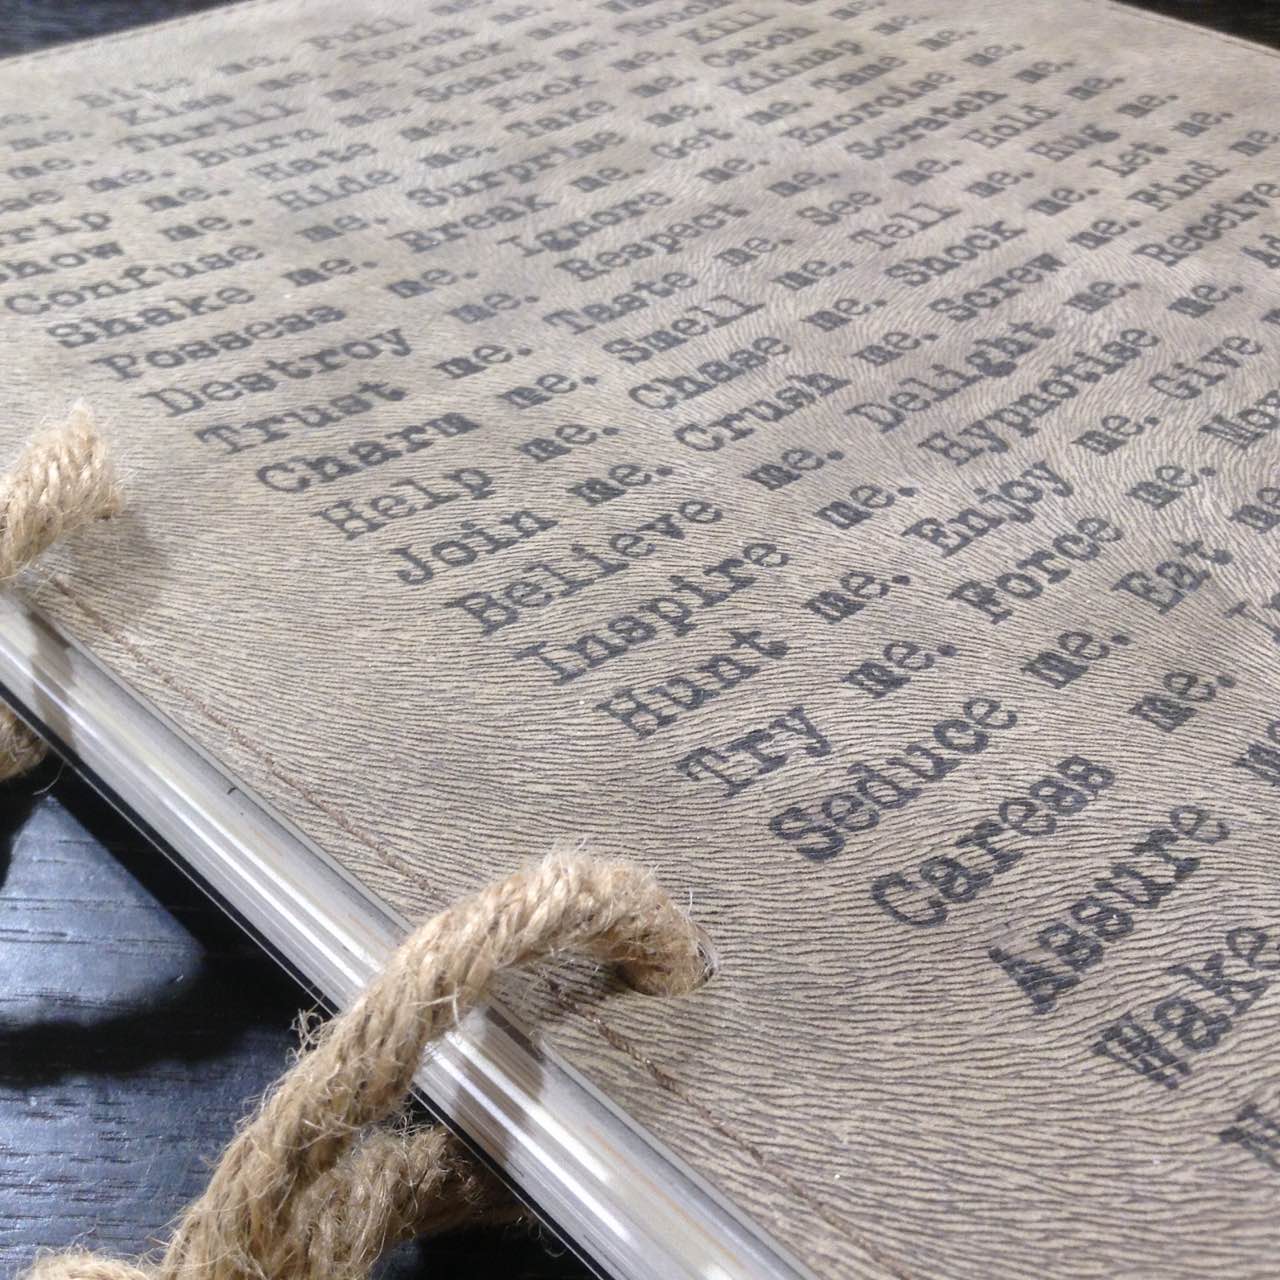 Bite me. Pull me.
me. Kiss me. Punch me.
me. Thrill me. Lick me.
me. Burn me. Scare me. Touch
rip me. Hate me. Fuck me. Kill
Show me. Hide me. Take me. Catch me.
Confuse me. Surprise me. Kidnap me.
Shake me. Break me. Get me. Tame me.
Possess me. Ignore me. Exorcise me.
Destroy me. Respect me. Scratch me.
Trust me. Taste me. See me. Hold me.
Charm me. Smell me. Tell me. Hug me.
Help me. Chase me. Shock me. Let me.
Join me. Crush me. Screw me. Find me.
Believe me. Delight me. Receive
Inspire me. Hypnotise me. Ad
Hunt me. Enjoy me. Give
Try me. Force me.
Seduce me. Eat me
Caress me.
Assure
Wake